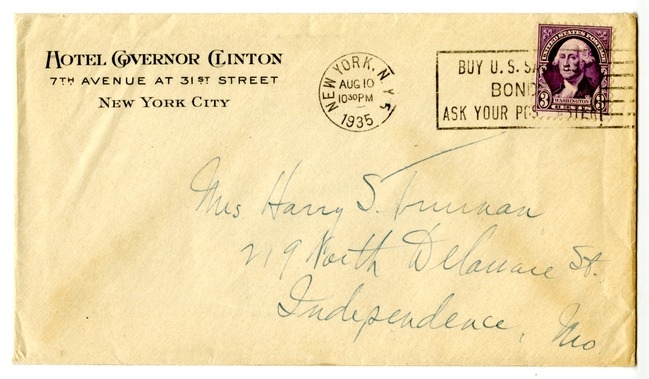 HOTEL GOVERNOR CLINTON
7TH AVENUE AT 31ST STREET
NEW YORK CITY
NEW YORK, N.Y.
AUG 10
10 30 PM
1935
5
BUY U.S.
BOND
ASK YOUR
UNITED STATES POSTAGE
3 WASHINGTON 3
Mrs Harry S. Truman
219 North Delaware St.
Independence, Mo